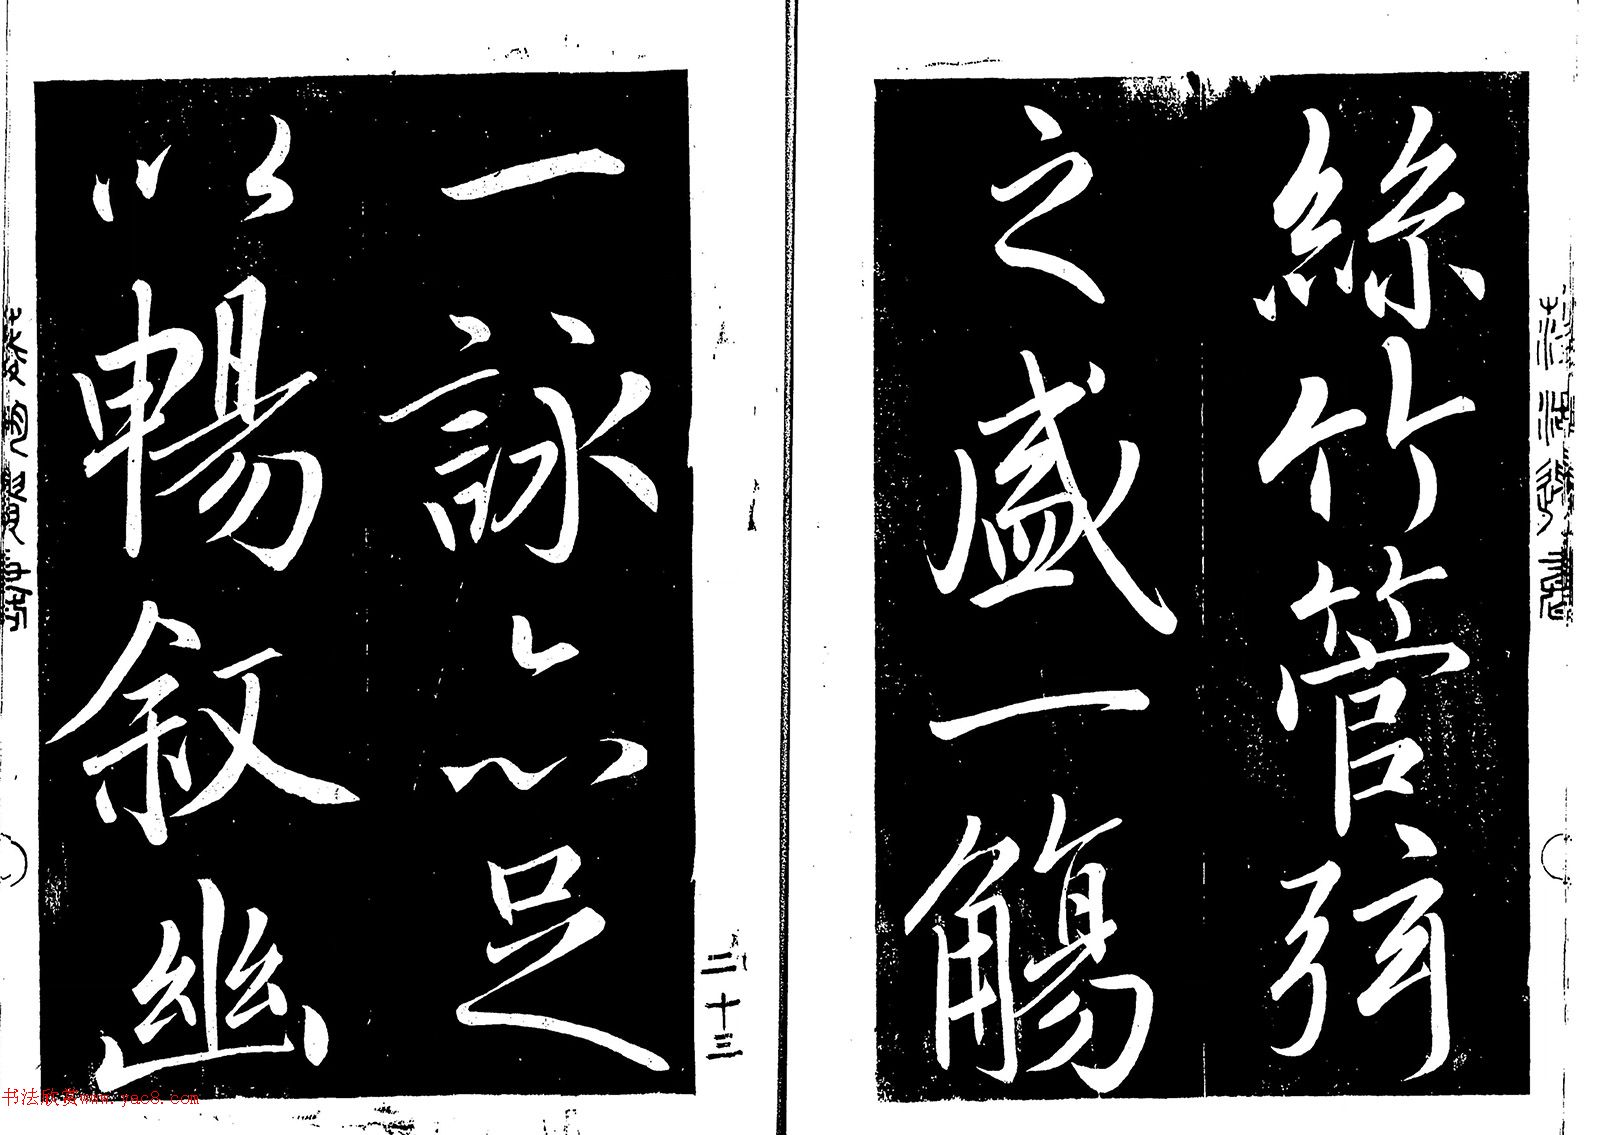 絲竹管弦
之盛一觴
一詠亦足
以暢叙幽
二十三
书法欣赏www.yac8.com